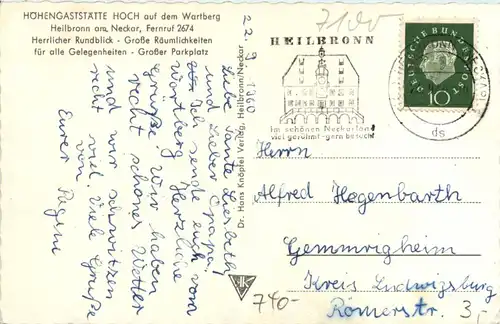 HÖHENGASTSTÄTTE HOCH auf dem Wartberg
Heilbronn am Neckar, Fernruf 2674
Herrlicher Rundblick - Große Räumlichkeiten
für alle Gelegenheiten - Großer Parkplatz
22. 9. 1960
Liebe Tante Lisbeth,
und Lieber Opapa!
Ich sende euch vom
Wartberg Herzliche
Grüße. Wir haben
recht schönes Wetter
und wir schwitzen
recht viel. Viele Grüße
von
Eurer
Dr. Hans Knöpfel Verlag, Heilbronn/Neckar
HEILBRONN
Im schönen Neckartal
viel gerühmt - gern besucht
DEUTSCHE BUNDESPOST
10
ds
Herrn
Alfred Hegenbarth
Gemmrigheim
Kreis Ludwigsburg
Römerstr. 3
740-
3,-